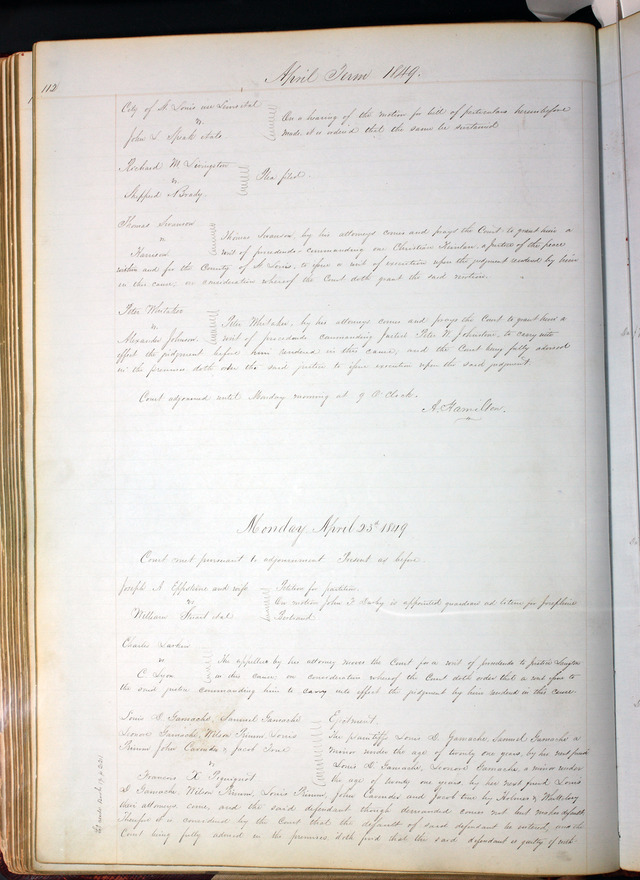 112
April Term 1849.
City of St Louis use
vs
John S. Speak & als
On a hearing of the motion for bill of particulars hereinbefore
made it is ordered that the same be sustained
Richard M Livingston
vs
Sheppard & Brady.
Plea filed.
Thomas Swanson
vs
Harrison
Thomas Swanson, by his attorneys comes and prays the Court to grant him a
writ of procedendo commanding one Christian a justice of the peace
within and for the County of St Louis, to issue a writ of execution upon the judgment rendered by him
in this cause, on consideration whereof the Court doth grant the said motion.
Peter Whitaker
vs
Alexander Johnson
Peter Whitaker, by his attorneys comes and prays the Court to grant him a
writ of procedendo commanding Justice Peter W. Johnston, to carry into
effect the judgment before him rendered in this cause, and the Court being fully advised
in the premises doth order the said justice to issue execution upon the said judgment.
Court adjourned until Monday morning at 9 O'Clock.
A. Hamilton.
Monday April 23d 1849
Court met pursuant to adjournment Present as before
Joseph A. and wife
vs
William &al
Petition for partition.
On motion John F. Darby is appointed guardian ad litem for Josephine
Charles Larkin
vs
C. Lyon
The appellee by his attorney moves the Court for a writ of procedendo to justice
in this cause; on consideration whereof the Court doth order that a writ issue to
the said justice commanding him to carry into effect the judgment by him rendered in this cause
Louis G Gamache, Samuel Gamache
Leonore Gamache, Wilson Primm Louis
Primm John Cavender & Jacob True
vs
Francois X.
Ejectment.
The plaintiffs Louis G. Gamache, Samuel Gamache a
minor under the age of twenty one years, by his next friend
Louis G. Gamache, Leonore Gamache, a minor under
the age of twenty one years, by her next friend Louis
G Gamache, Wilson Primm, Louis Primm, John Cavender and Jacob True by Holmes &
their attorneys come, and the said defendant though demanded comes not but makes default
Therefore it is considered by the Court that the default of said defendant be entered, and the
Court being fully advised in the premises doth find that the said defendant is guilty of with-